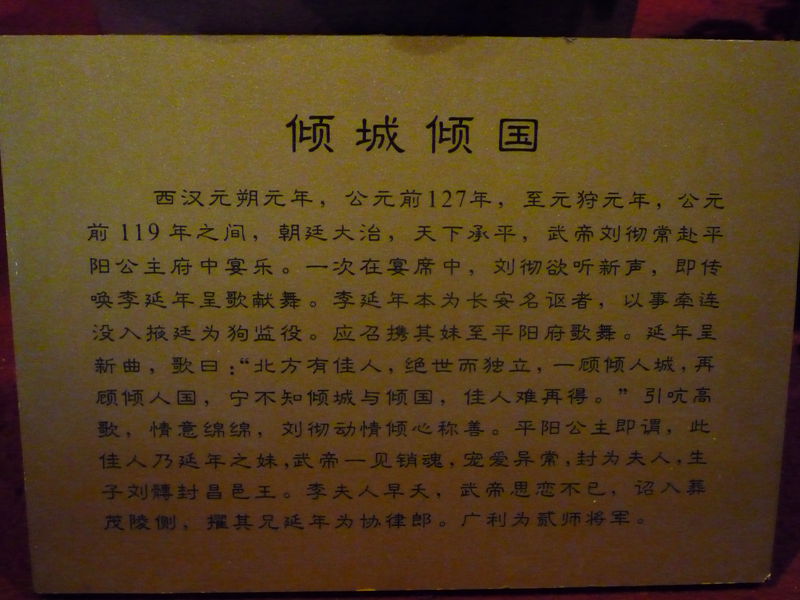 倾城倾国
西汉元朔元年，公元前127年，至元狩元年，公元
前119年之间，朝廷大治，天下承平，武帝刘彻常赴平
阳公主府中宴乐。一次在宴席中，刘彻欲听新声，即传
唤李延年呈歌献舞。李延年本为长安名讴者，以事牵连
没入掖廷为狗监役。应召携其妹至平阳府歌舞。延年呈
新曲，歌曰：“北方有佳人，绝世而独立，一顾倾人城，再
顾倾人国，宁不知倾城与倾国，佳人难再得。”引吭高
歌，情意绵绵，刘彻动情倾心称善。平阳公主即谓，此
佳人乃延年之妹，武帝一见销魂，宠爱异常，封为夫人，生
子刘髆封昌邑王。李夫人早夭，武帝思恋不已，诏入葬
茂陵侧，擢其兄延年为协律郎。广利为贰师将军。